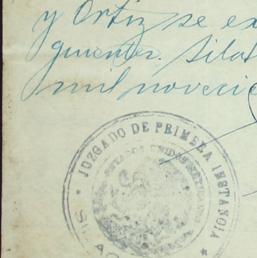 y Ortiz se ex
guientes. Silao
mil noveci
JUZGADO DE PRIMERA INSTANCIA
ESTADOS UNIDOS MEXICANOS